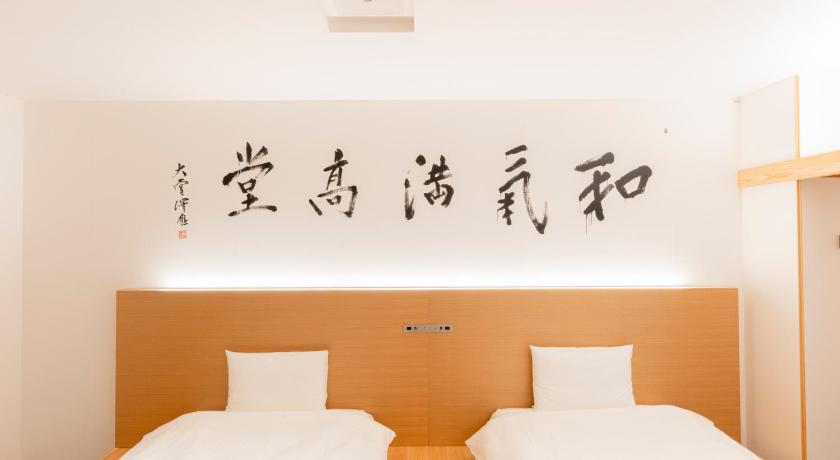 和氣満高堂
大堂澤應